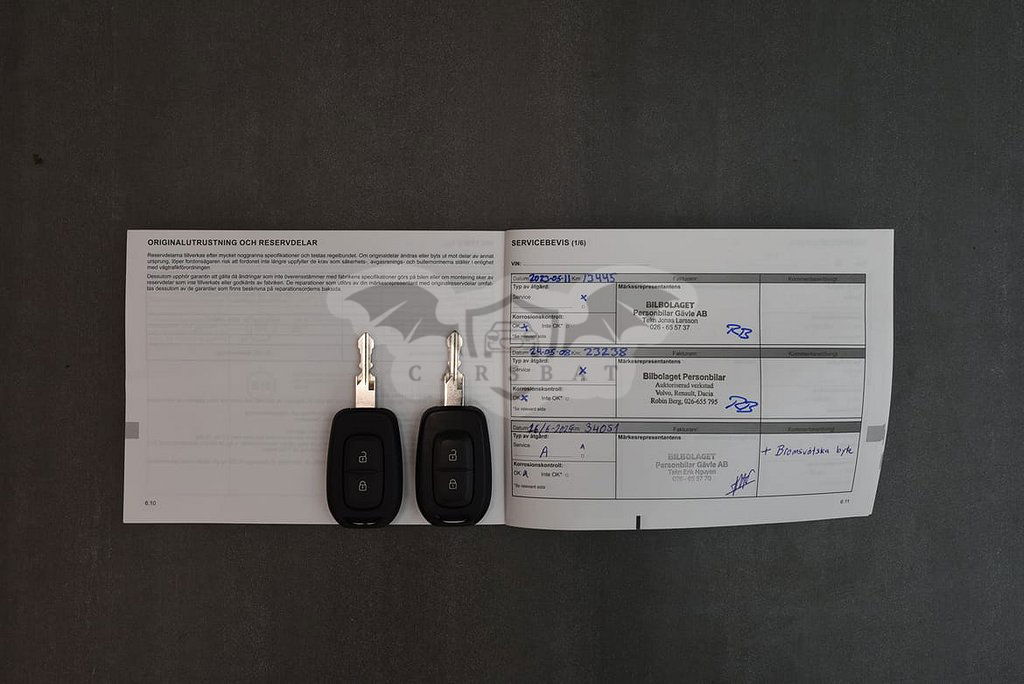 ORIGINALUTRUSTNING OCH RESERVDELAR
Reservdelarna tillverkas efter mycket noggranna specifikationer och testas regelbundet. Om originaldelar ändras eller byts ut mot delar av annat
ursprung, löper fordonsägaren risk att fordonet inte längre uppfyller de krav som säkerhets-, avgasrenings- och bullernormerna ställer i enlighet
med vägtrafikförordningen.
Dessutom upphör garantin att gälla då ändringar som inte överensstämmer med fabrikens specifikationer görs på bilen eller om montering sker av
reservdelar som inte tillverkats eller godkänts av fabriken. De reparationer som utförs av din märkesrepresentant med originalreservdelar omfat-
tas dessutom av de garantier som finns beskrivna på reparationsorderns baksida.
6.10
SERVICEBEVIS (1/6)
VIN:
Datum: 2023-05-11 Km: 13445 Fakturanr:
Typ av åtgärd:
Service X
Korrosionskontroll:
OK X Inte OK*
*Se relevant sida
Märkesrepresentantens
BILBOLAGET
Personbilar Gävle AB
Tekn Jonas Larsson
026 - 65 57 37
RB
Datum: 24-05-08 Km: 23238 Fakturanr:
Typ av åtgärd:
Service X
Korrosionskontroll:
OK X Inte OK*
*Se relevant sida
Märkesrepresentantens
Bilbolaget Personbilar
Auktoriserad verkstad
Volvo, Renault, Dacia
Robin Berg, 026-655 795
RB
Datum: Km: 34051 Fakturanr:
Typ av åtgärd:
Service A
Korrosionskontroll:
OK Inte OK*
*Se relevant sida
Märkesrepresentantens
BILBOLAGET
Personbilar Gävle AB
Tekn Erik Nguyen
+ Bromsvätska byte
6.11
CARSBAT